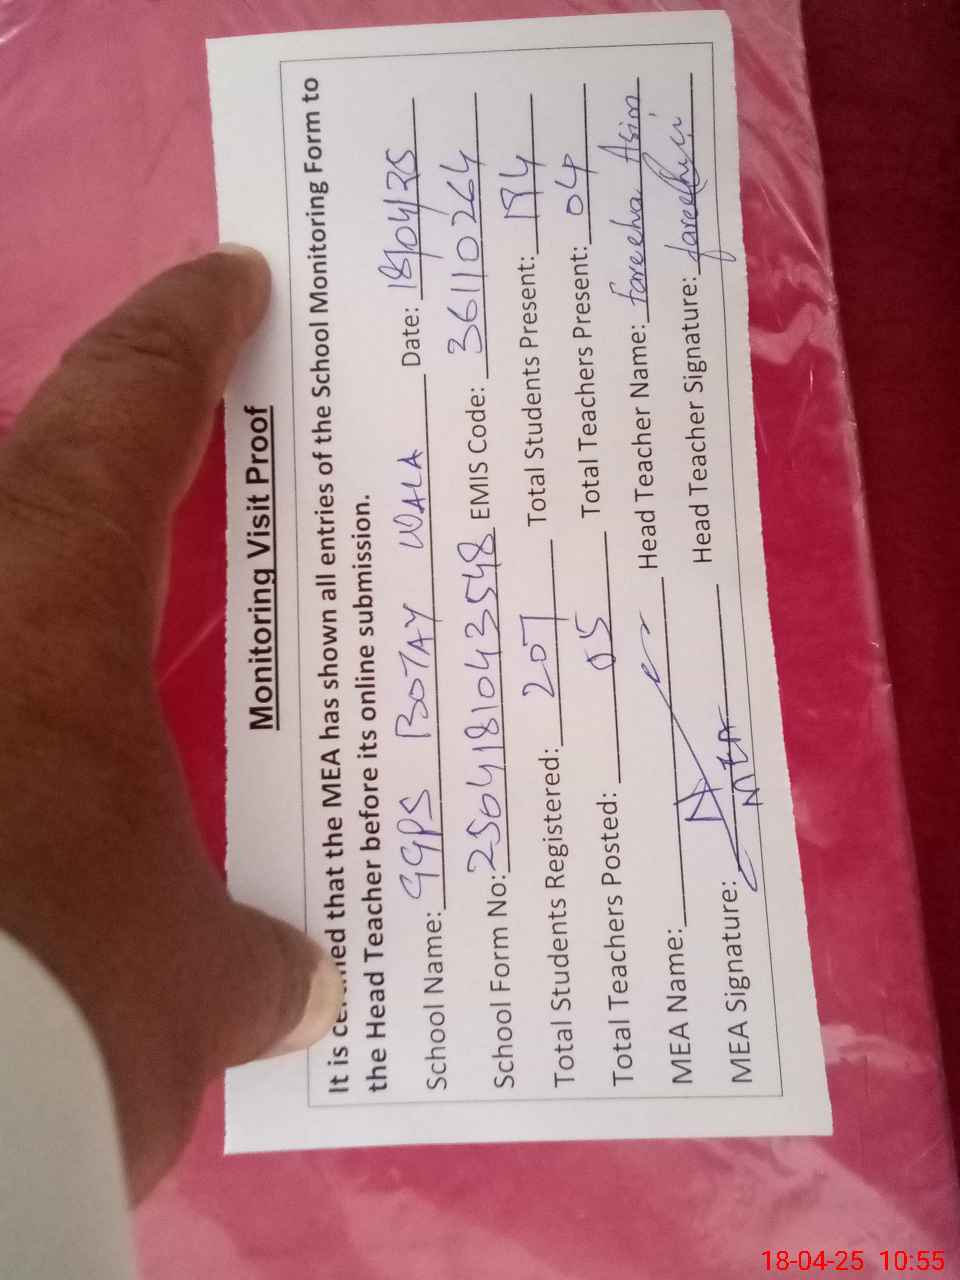 Monitoring Visit Proof
It is certified that the MEA has shown all entries of the School Monitoring Form to
the Head Teacher before its online submission.
School Name: GGPS BOTAY WALA Date: 18/04/25
School Form No: 2504181043548 EMIS Code: 36110264
Total Students Registered: 207 Total Students Present: 194
Total Teachers Posted: 05 Total Teachers Present: 04
MEA Name: Head Teacher Name: fareeha Asim
MEA Signature: MEA Head Teacher Signature:
18-04-25 10:55